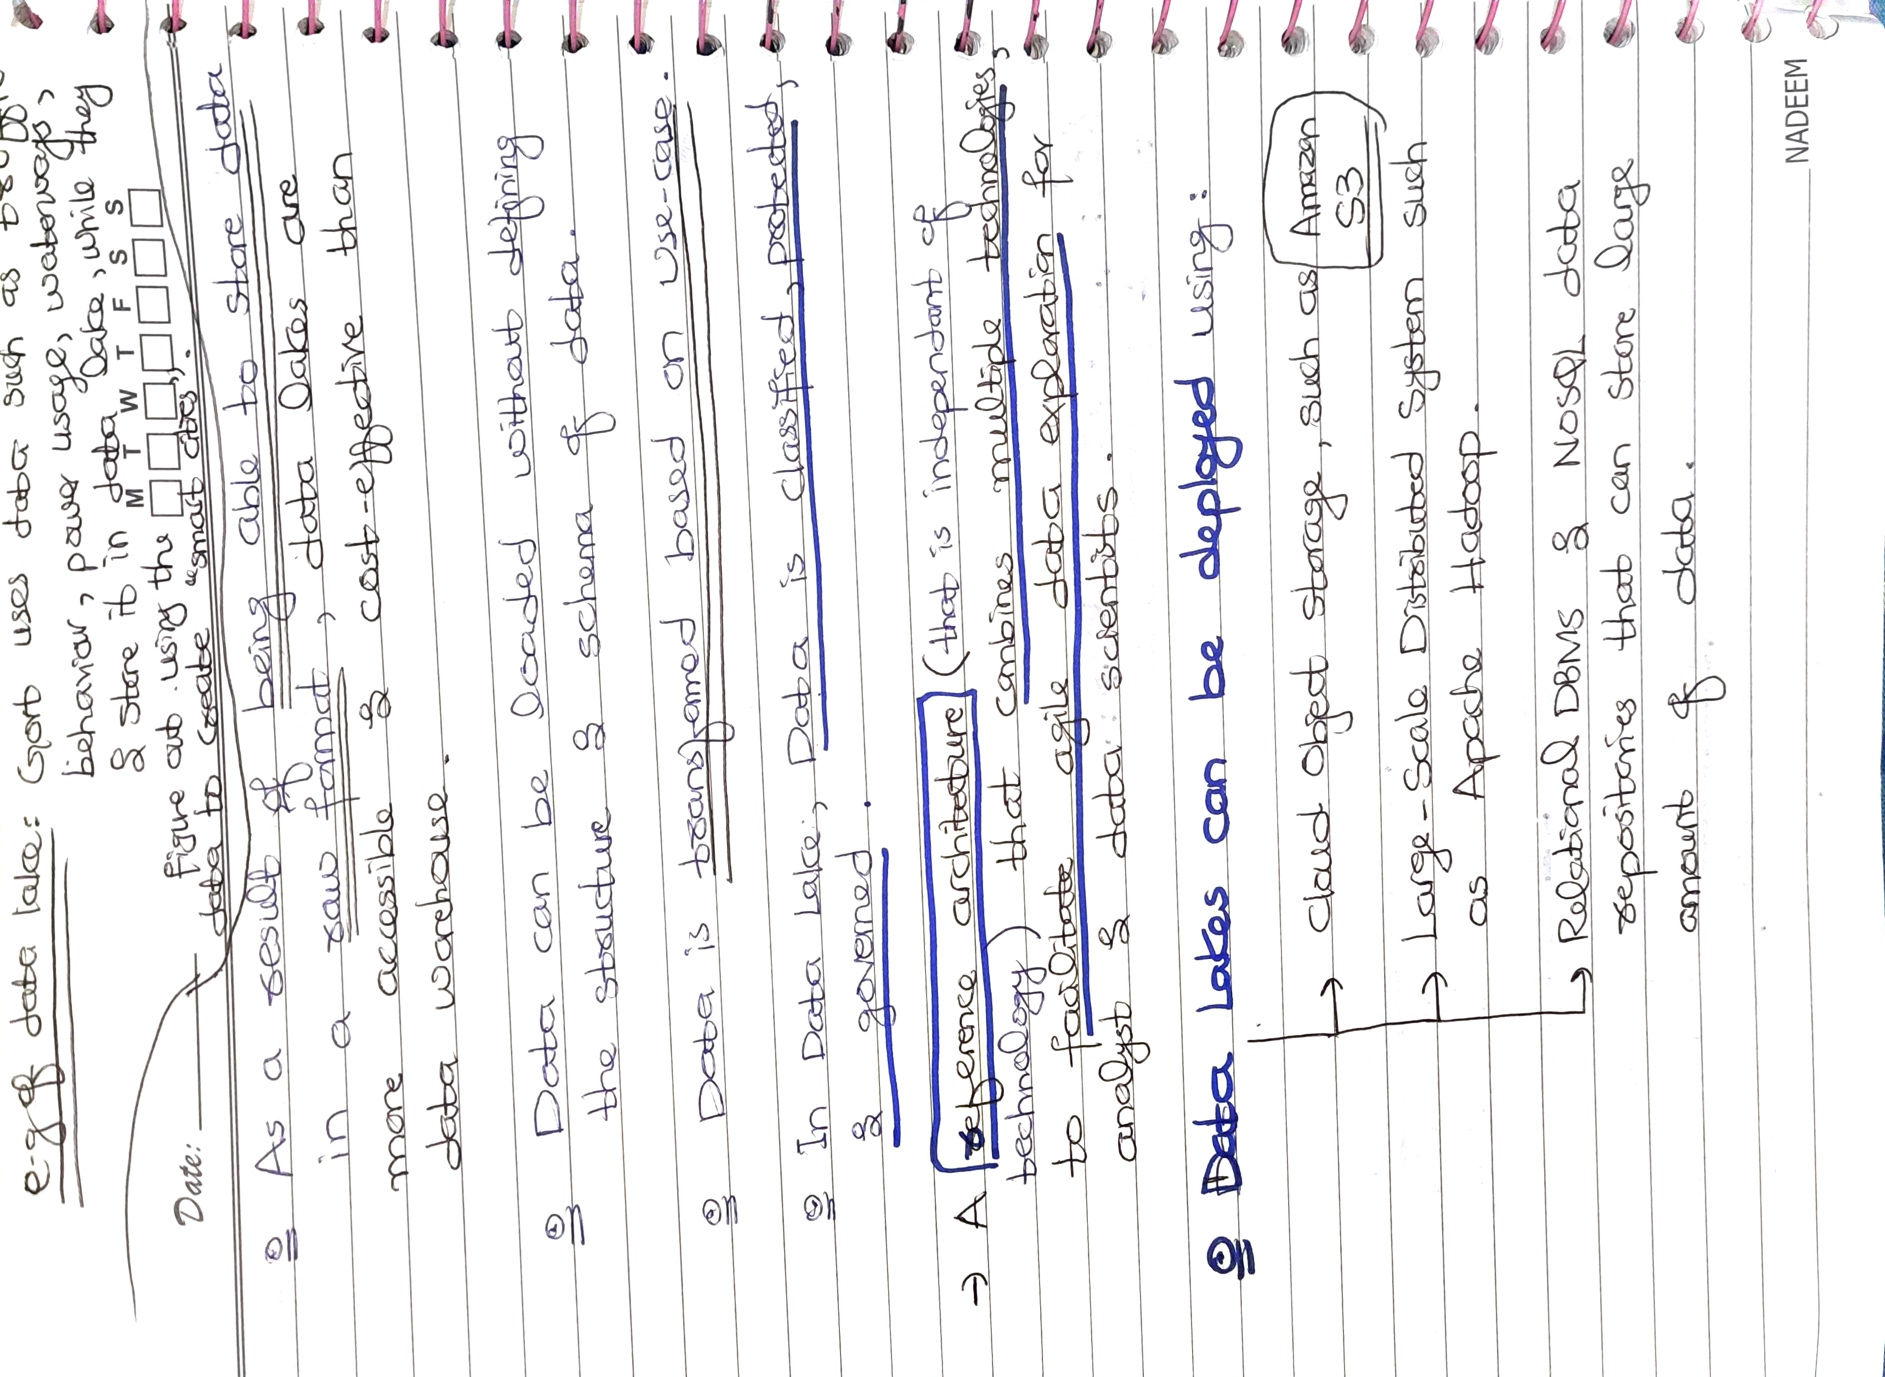 e-g of data lake: Govt uses data such as traffic
behavior, power usage, waterways,
& store it in data lake, while they
M T W T F S S
figure out using the
data to create "smart cities".
Date:
As a result of being able to store data
in a raw format, data lakes are
more accessible & cost-effective than
data warehouse.
Data can be loaded without defining
the structure & schema of data.
Data is transformed based on use-case.
In Data Lake, Data is classified, protected,
& governed.
→ A reference architecture (that is independant of
technology) that combines multiple technologies,
to facilitate agile data exploration for
analyst & data scientists.
Data Lakes can be deployed using:
→ Cloud Object Storage, such as Amazon
S3
→ Large-Scale Distributed System such
as Apache Hadoop.
→ Relational DBMS & NoSQL data
repositories that can store large
amount of data.
NADEEM